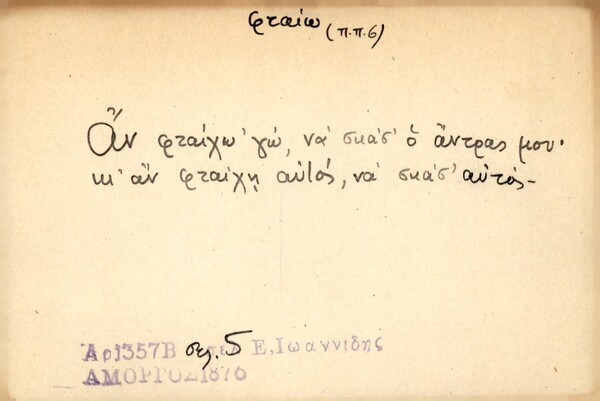 φταίω (π.π.6)
Ἄν φταίχω 'γώ, νά σκάσ' ὁ ἄντρας μου·
κι' ἄν φταίχῃ αὐτός, νά σκάσ' αὐτός-
Ἀρ 1357Β σελ. 5 Ε, Ἰωαννίδης
ΑΜΟΡΓΟΣ 1876